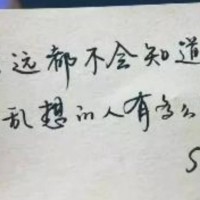 远都不会知道
乱想的人有多么
S